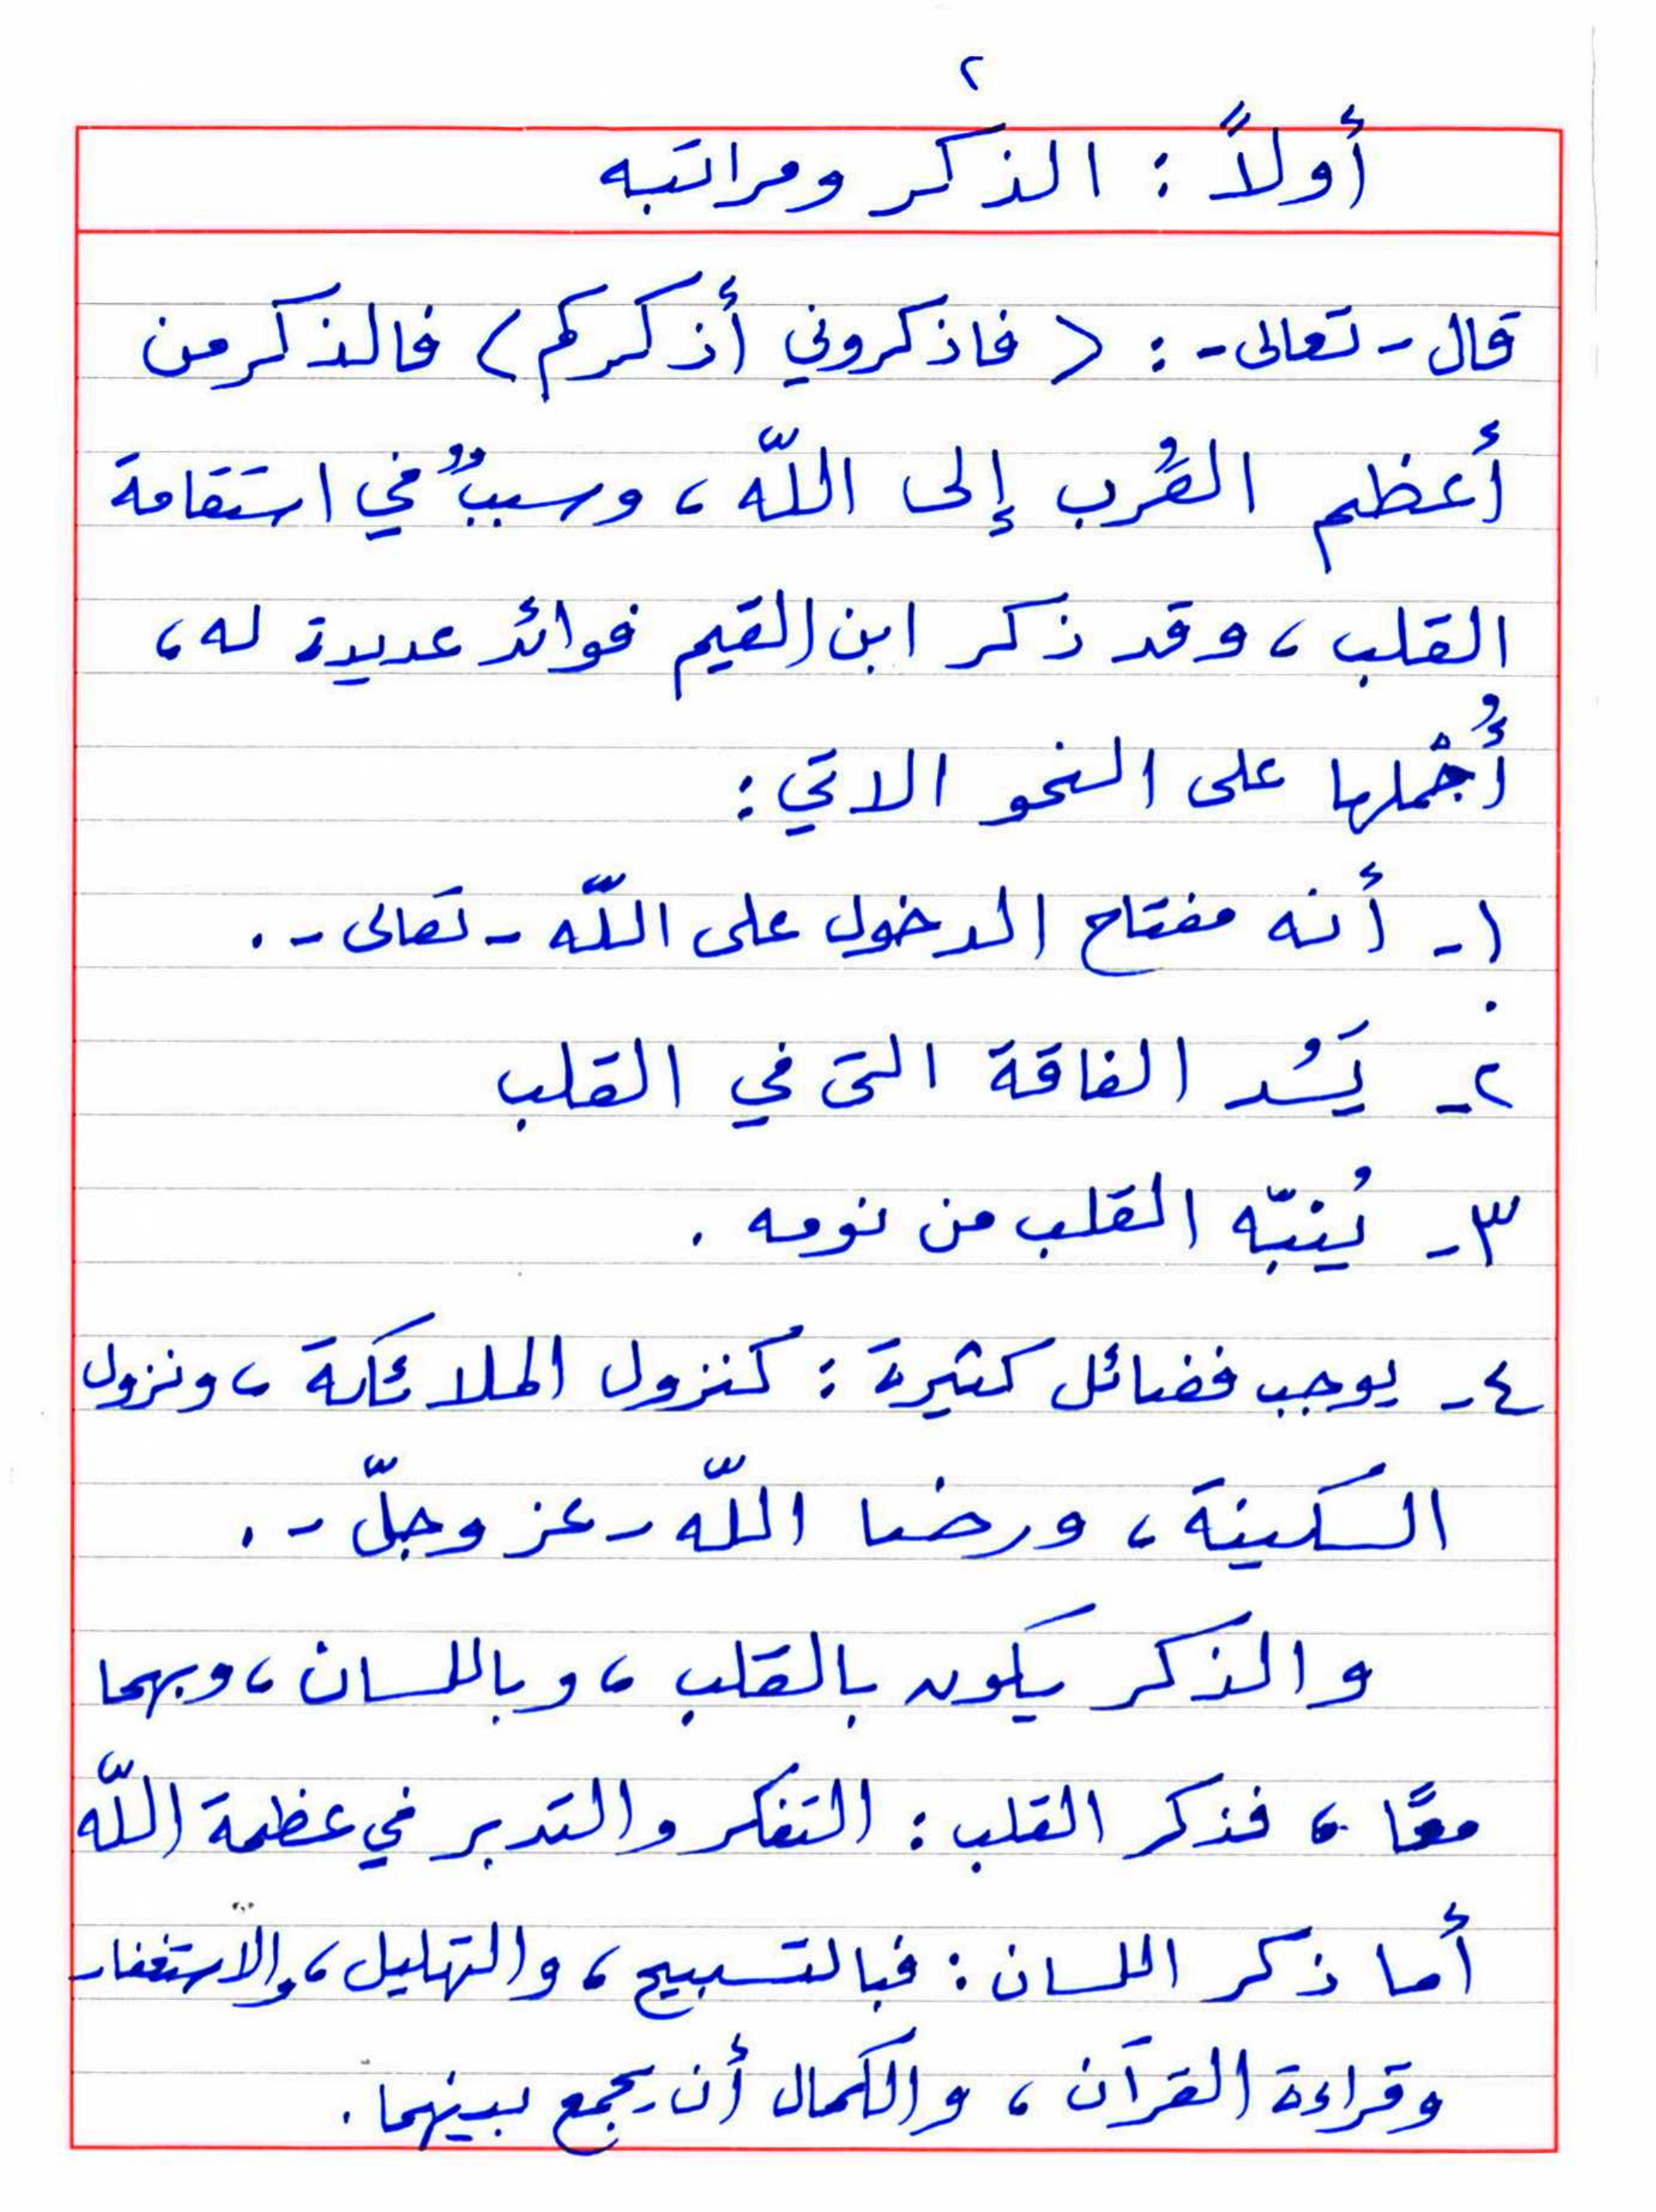 ٢
أولاً : الذكر ومراتبه
قال - تعالى - : ( فاذكروني أذكركم ) فالذكر من
أعظم القُرب إلى اللّه ، وسببٌ في استقامة
القلب ، وقد ذكر ابن القيم فوائد عديدة له ،
أُجْملها على النحو الاتي :
١- أنه مفتاح الدخول على اللّه - تعالى - .
٢- يَسُد الفاقة التى في القلب
٣- يُنبّه القلب من نومه .
٤- يوجب فضائل كثيرة : كنزول الملائكة ، ونزول
السكينة ، ورضا اللّه - عز وجلّ - .
والذكر يكون بالقلب ، وباللسان ، وبهما
معًا ، فذكر القلب : التفكر والتدبر في عظمة اللّه
أما ذكر اللسان : فبالتسبيح ، والتهليل ، والاستغفار
وقراءة القرآن ، والكمال أن يجمع بينهما .